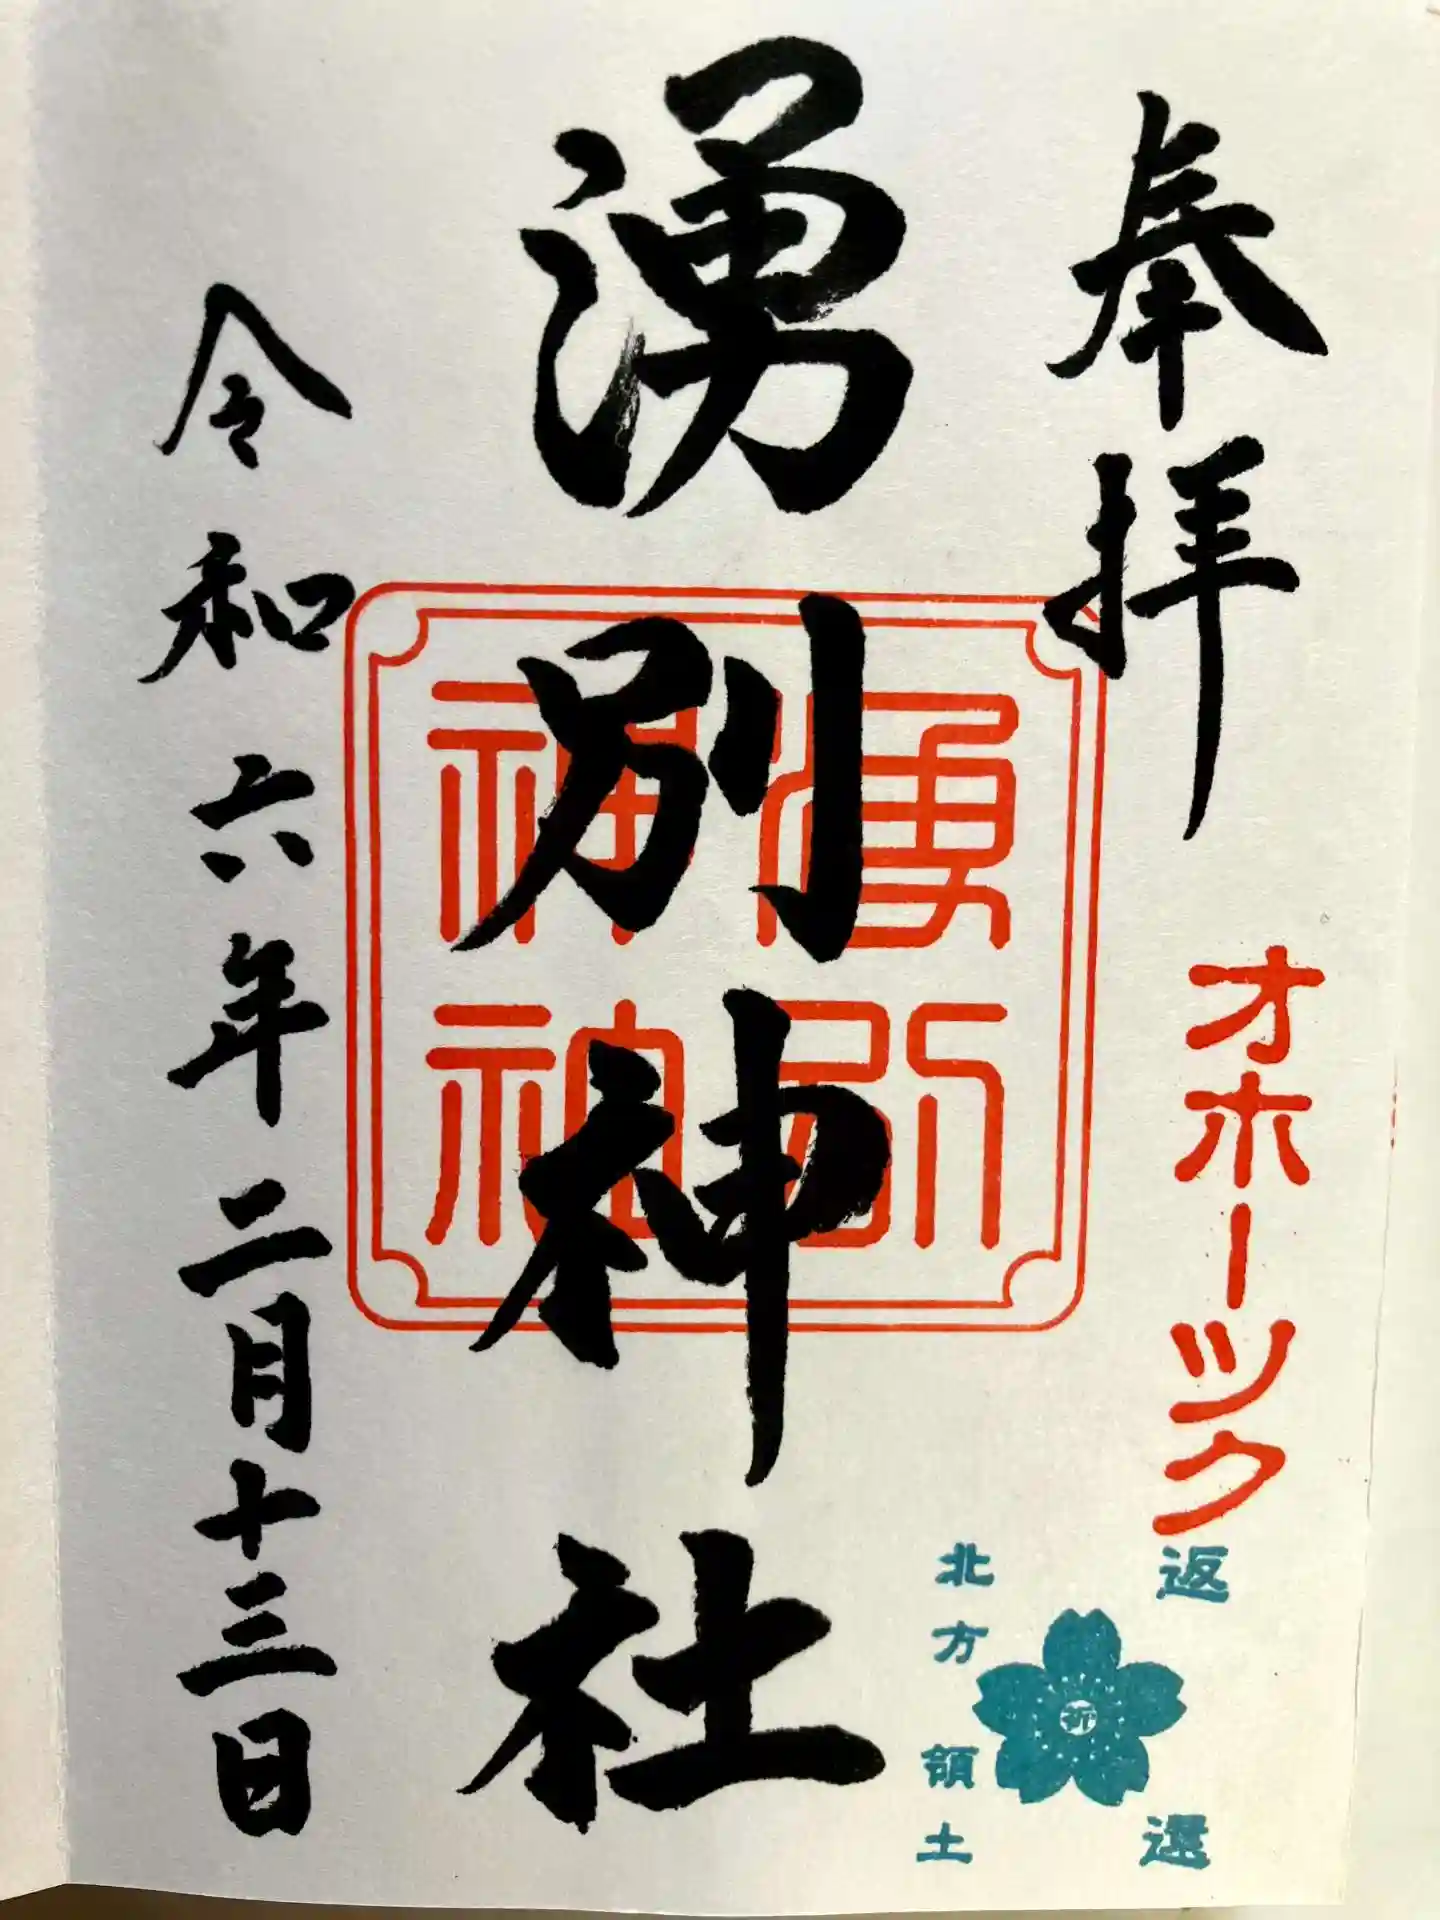 奉拝
オホーツク
返還
北方領土
祈
湧別神社
湧別
神社
令和六年二月十三日